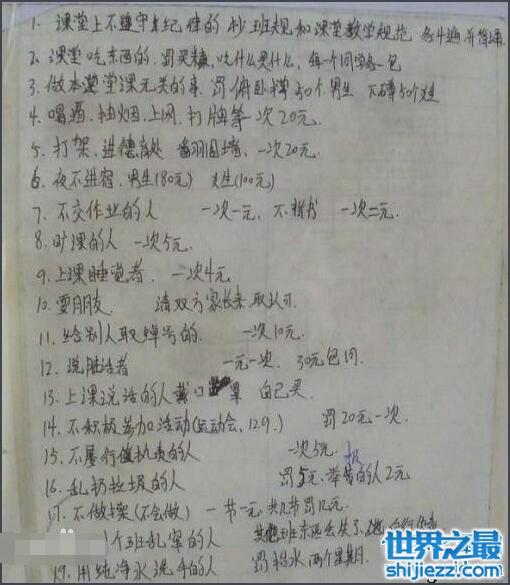 1. 课堂上不遵守纪律的 抄班规和课堂教学规范 各十遍并背诵
2. 课堂吃东西的. 罚买糖, 吃什么买什么, 每一个同学各一包
3. 做本堂课无关的事 罚俯卧撑50个男生 下蹲50个女生
4. 喝酒、抽烟、上网、打牌等一次20元.
5. 打架、进德育处 翻围墙、一次20元.
6. 夜不进宿. 男生(80元) 女生(100元)
7. 不交作业的人 一次一元, 不背书 一次二元.
8. 旷课的人 一次5元.
9. 上课睡觉者. 一次4元
10. 耍朋友 请双方家长来取认可.
11. 给别人取绰号的. 一次10元.
12. 说脏话者 一元一次. 30元包月.
13. 上课说话的人戴口罩 自己买.
14. 不积极参加活动(运动会、129.) 罚20元一次.
15. 不履行值日责的人 一次5元.
16. 乱扔垃圾的人 罚5元. 举报的人2元
17. 不做操(不会做) 一节一元 共几节罚几元.
个班乱窜的人
19. 用纯净水洗手的人 罚抬水两个星期.
世界之最
shijiezz.com